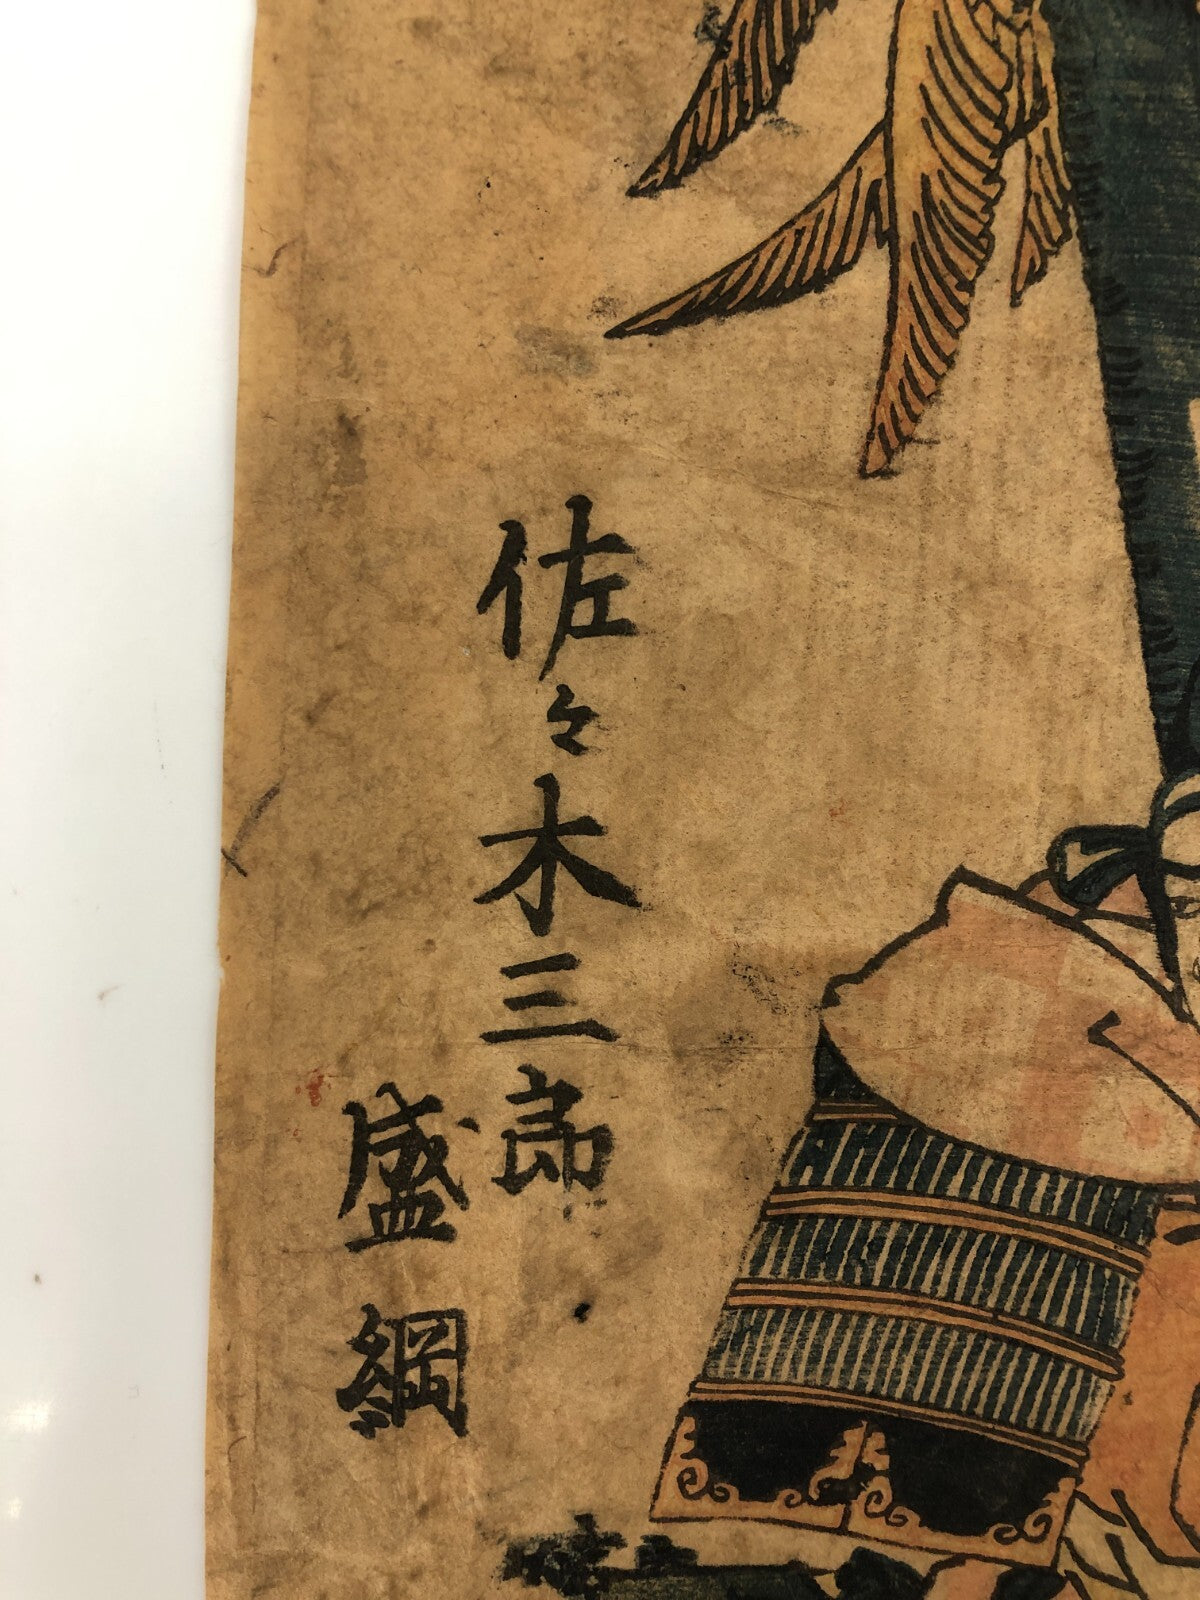 佐々木三郎
盛綱